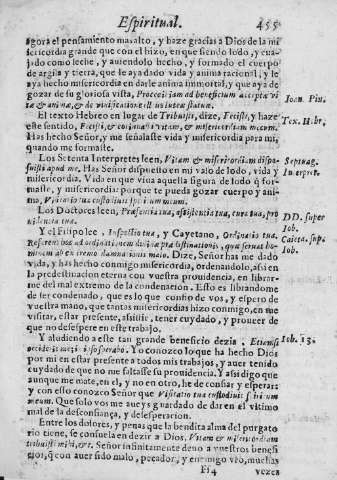 Espiritual. 455
agora el pensamiento mas alto, y haze gracias a Dios de la mi
sericordia grande que con el hizo, en que siendo lodo, y cua-
jado como leche, y auiendolo hecho, y formado el cuerpo
de argila y tierra, que le aya dado vida y anima racional, y le
aya hecho misericordia en darle anima immortal, y que aya de
gozar de su gloriosa vista,
Ioan. Pin.
El texto Hebreo en lugar de Tribuisti, dize, Fecisti, y haze
este sentido, Fecisti, & vitam, & misericordiam mecum.
Tex. Hebr.
Has hecho Señor, y me señalaste vida y misericordia para mi,
quando me formaste.
Los Setenta Interpretes leen, Vitam & misericordiam dispo-
suisti apud me. Has Señor dispuesto en mi vaso de lodo, vida y
misericordia. Vida en que viua aquella figura de lodo q̃ for-
maste, y misericordia: porque te pueda gozar cuerpo y ani-
mo,
Septuag.
Interpret.
Los Doctores leen, Præsentia tua, assistentia tua, cura tua, pro
uidentia tua.
DD. super
Iob.
Y el Filipo lee, Inspectio tua, y Cayetano, Ordinatio tua.
Caieta. sup.
Iob.
Dize, Señor has me dado
vida, y has hecho conmigo misericordia, ordenandolo, assi en
la predestinacion eterna con vuestra prouidencia, en librar-
me del mal extremo de la condenacion. Esto es librandome
de ser condenado, que es lo que confio de vos, y espero de
vuestra mano, que tantas misericordias hizo conmigo, en me
visitar, estar presente, assistir, tener cuydado, y proueer de
que no desespere en este trabajo.
Y aludiendo a este tan grande beneficio dezia. Etiamsi
occiderit me, in ipso sperabo. Yo conozco lo que ha hecho Dios
Iob. 13.
por mi en estar presente a todos mis trabajos, y auer tenido
cuydado de que no me faltasse su prouidencia. Y assi digo que
aunque me mate, en el, y no en otro, he de confiar y esperar:
y con esto conozco Señor que Visitatio tua custodiuit spiritum
meum. Que solo vos me aueys guardado de dar en el vltimo
mal de la desconfiança, y desesperacion.
Entre los dolores, y penas que la bendita alma del purgato
rio tiene, se consuela en dezir a Dios. Vitam & misericordiam
tribuisti mihi, &c. Señor infinitamente deuo a vuestros benefi
cios, q̃ con auer sido malo, pecador, y enemigo vro, muchas
Ff 4 vezes